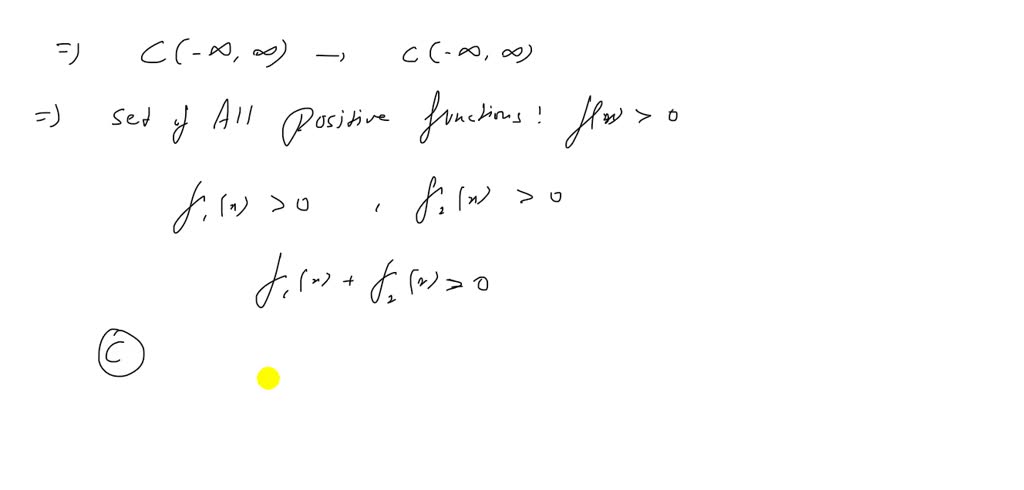 =) C(-∞, ∞) → C(-∞, ∞)
=) Set of All Positive functions: f(x) > 0
f₁(x) > 0 , f₂(x) > 0
f₁(x) + f₂(x) > 0
C